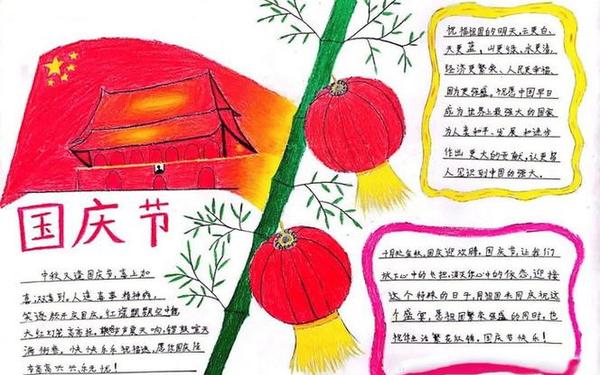 国庆节
中秋又逢国庆节,喜上加
喜,双喜到,人逢喜事精神爽,
笑逐颜开庆国庆,红旗飘飘
大红灯笼高高挂,
满街巷,快快乐乐
高高兴兴乐无忧!
祝福祖国的明天,云更白、
天更蓝,山更绿、水更清,
经济更繁荣、人民更幸福、
国力更强盛。祝愿中国早日
成为世界上最强大的国家
为人类和平、发展和进步
作出更大的贡献,让更多
人见识到中国的强大。
十月处金秋,国庆迎欢腾。国庆节,让我们
放下心中的包袱,消灭你心中的疲惫,迎接
这个特殊的日子,同祖国来同庆祝这
个盛宴,愿祖国繁荣强盛的同时,也
祝你生活繁花似锦,国庆节快乐!